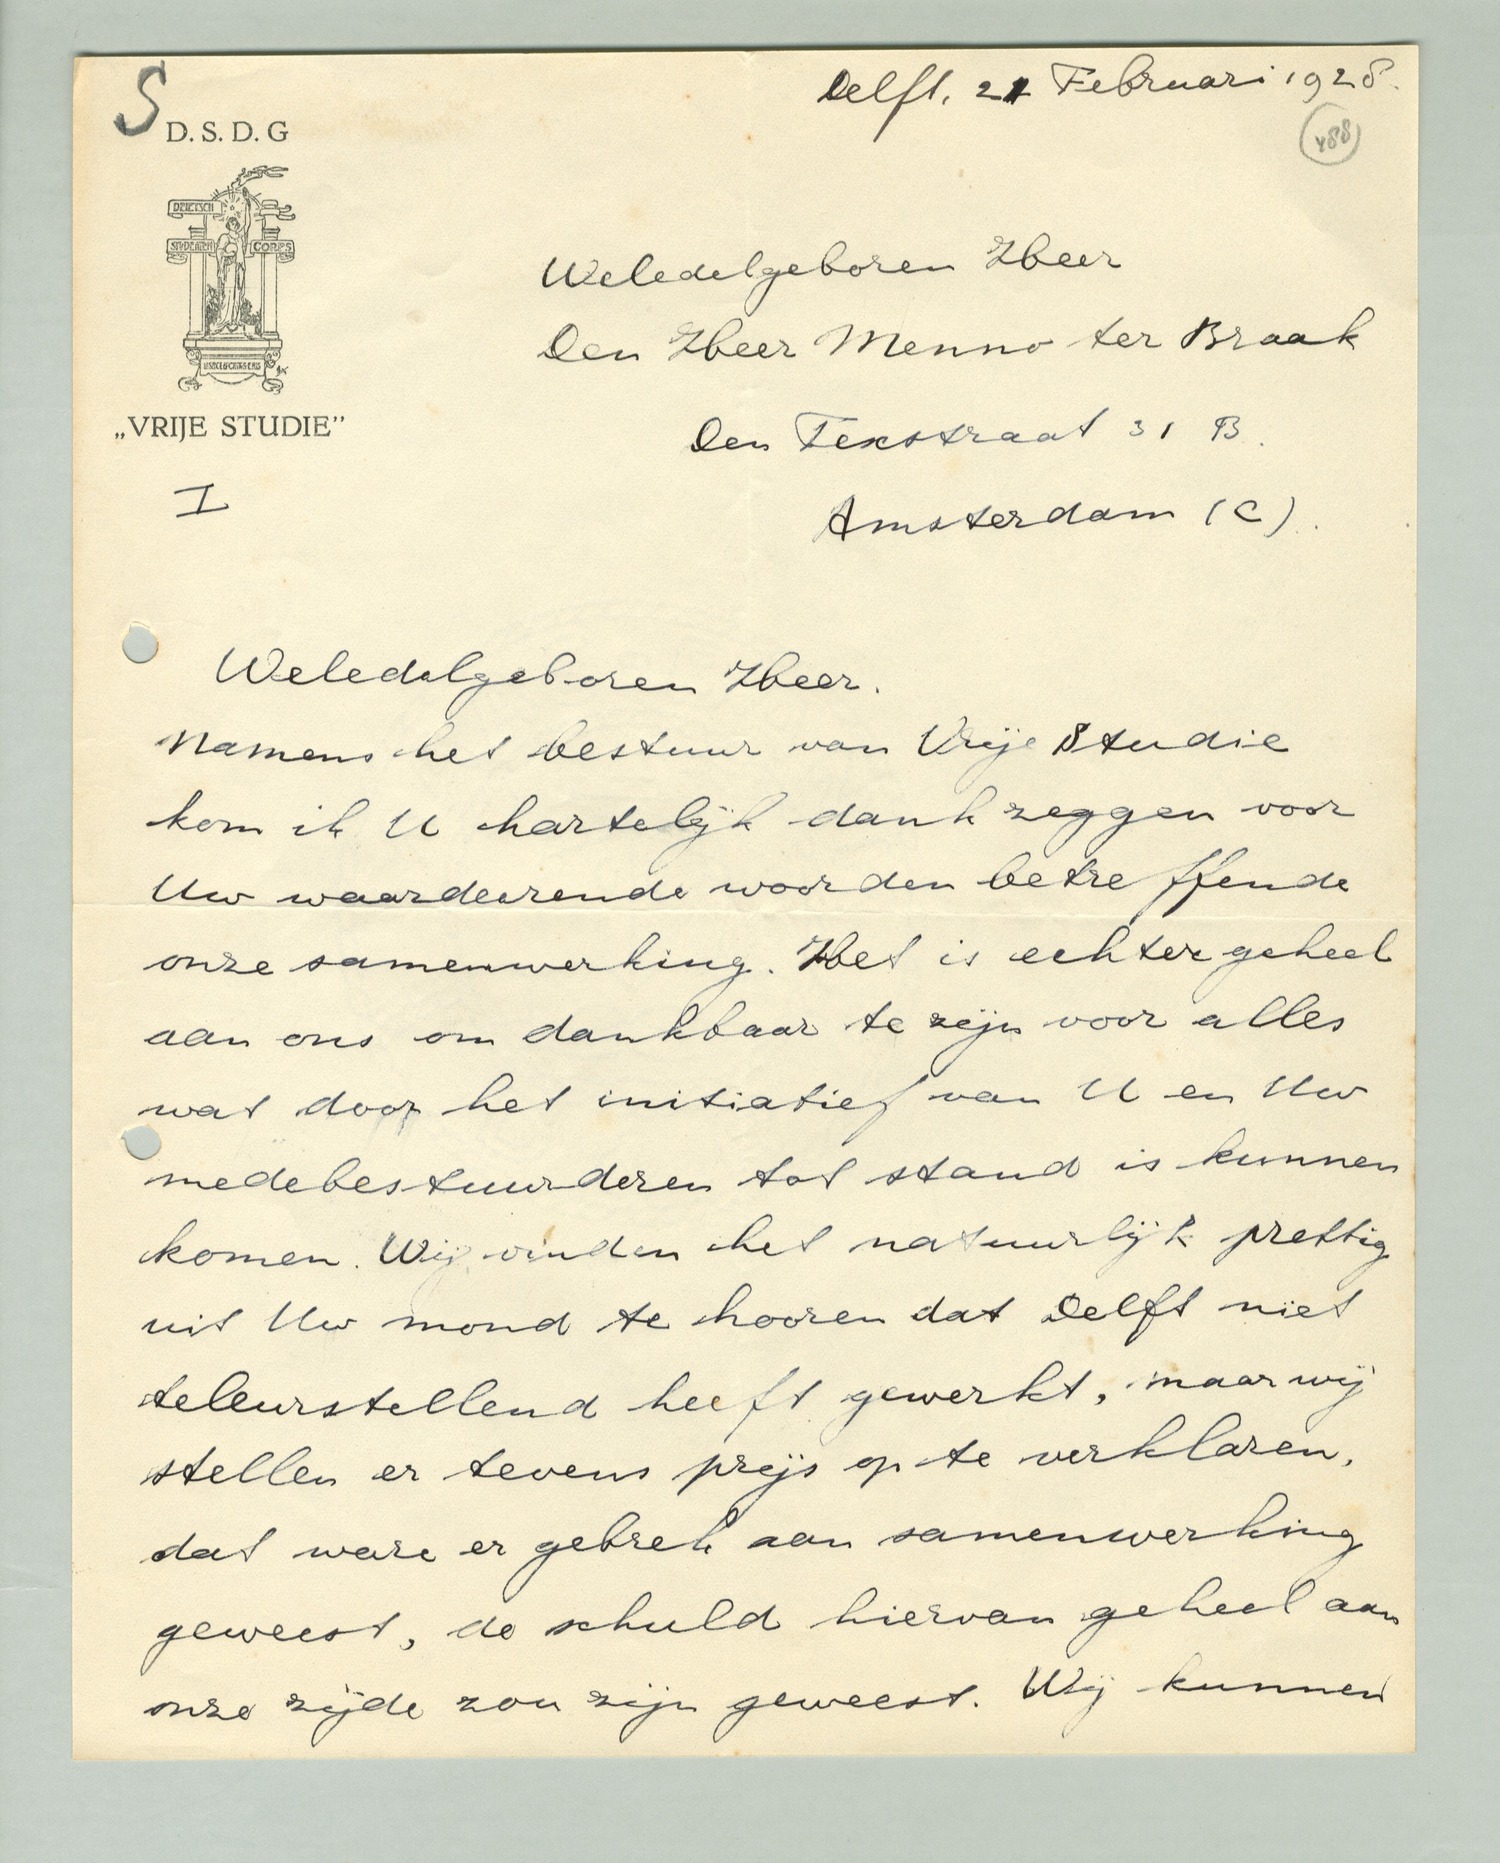 S
D. S. D. G
Delft, 21 Februari 1928.
488
DIETSCH
STUDENTEN CORPS
„VRIJE STUDIE”
I
Weledelgeboren Heer
Den Heer Menno ter Braak
Den Texstraat 31 B.
Amsterdam (C).
Weledelgeboren Heer.
Namens het bestuur van Vrije Studie
kom ik U hartelijk dank zeggen voor
Uw waardeerende woorden betreffende
onze samenwerking. Het is echter geheel
aan ons om dankbaar te zijn voor alles
wat door het initiatief van U en Uw
medebestuurderen tot stand is kunnen
komen. Wij vinden het natuurlijk prettig
uit Uw mond te hooren dat Delft niet
teleurstellend heeft gewerkt, maar wij
stellen er tevens prijs op te verklaren,
dat ware er gebrek aan samenwerking
geweest, de schuld hiervan geheel aan
onze zijde zou zijn geweest. Wij kunnen